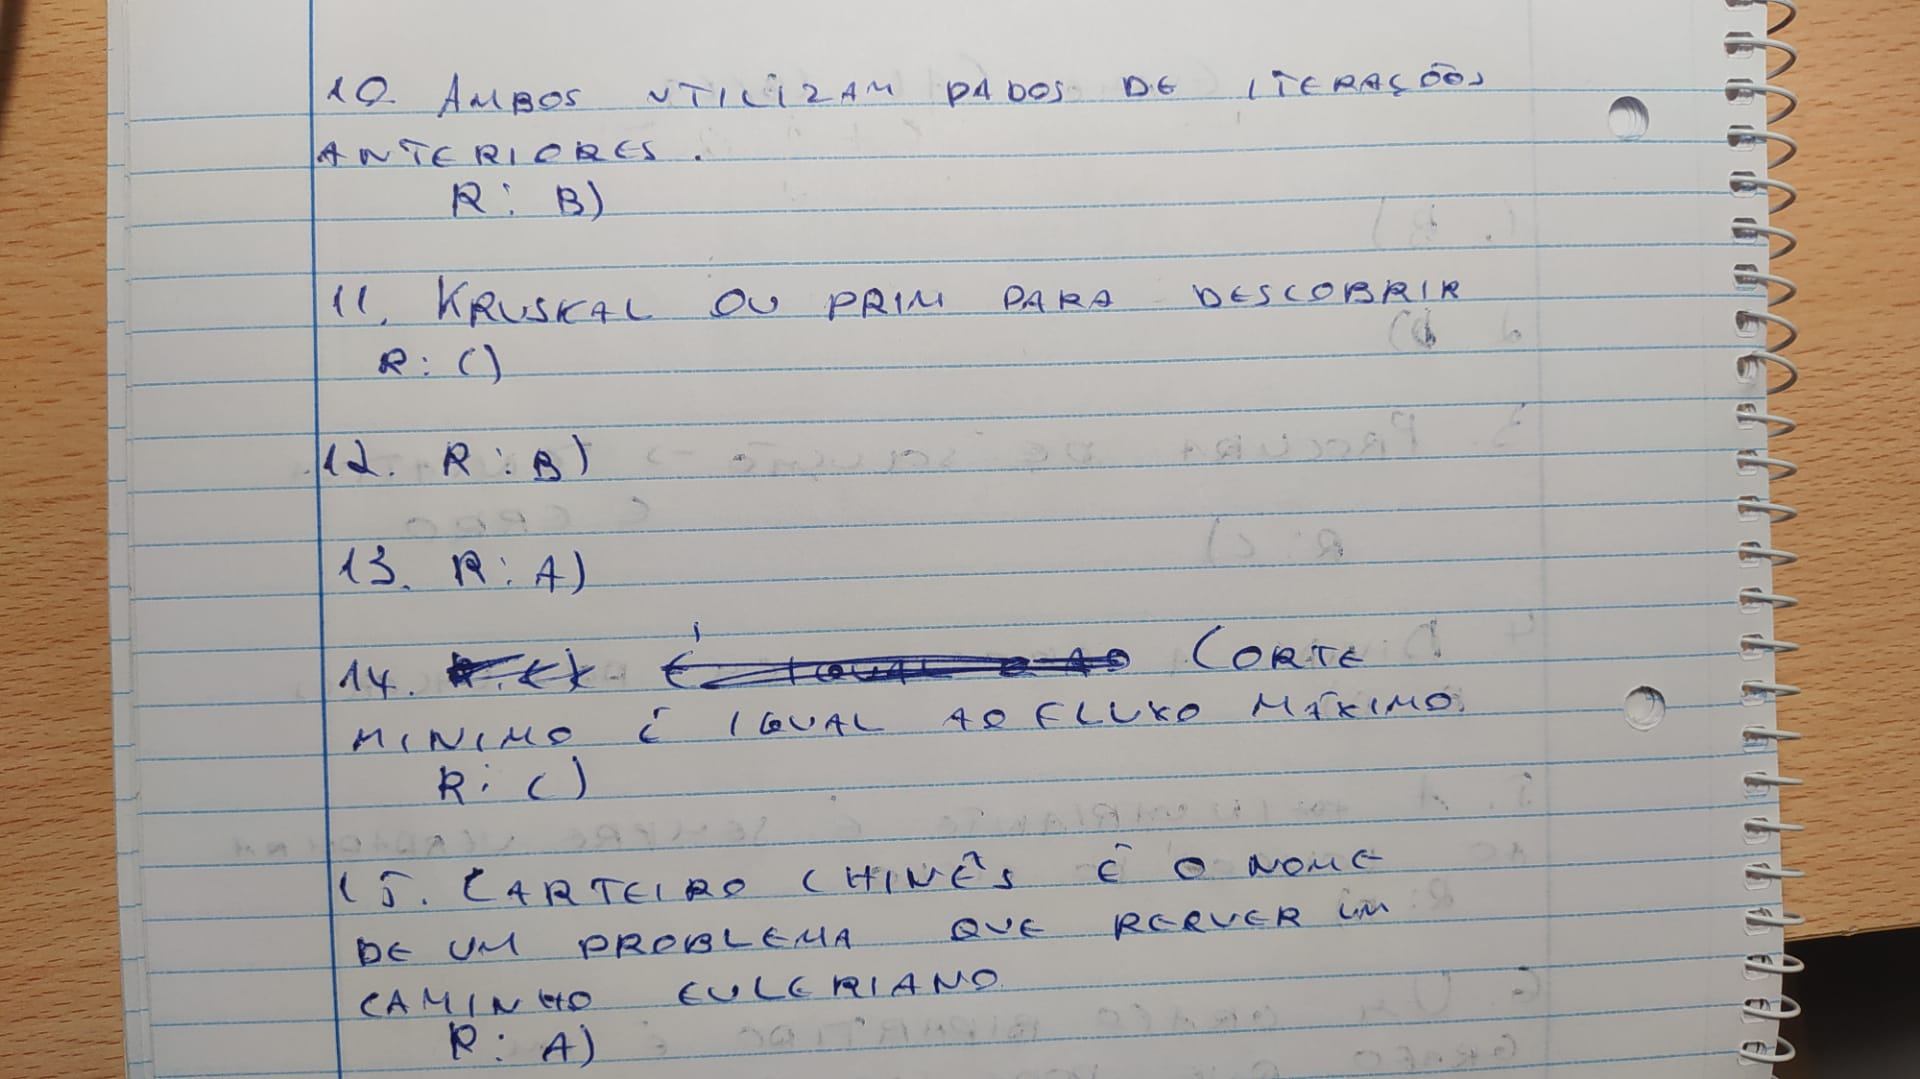 10. AMBOS UTILIZAM DADOS DE ITERAÇÕES
ANTERIORES.
R: B)
11. KRUSKAL OU PRIM PARA DESCOBRIR
R: C)
12. R: B)
13. R: A)
14. CORTE
MINIMO É IGUAL AO FLUXO MÁXIMO.
R: C)
15. CARTEIRO CHINÊS É O NOME
DE UM PROBLEMA QUE REQUER UM
CAMINHO EULERIANO
R: A)